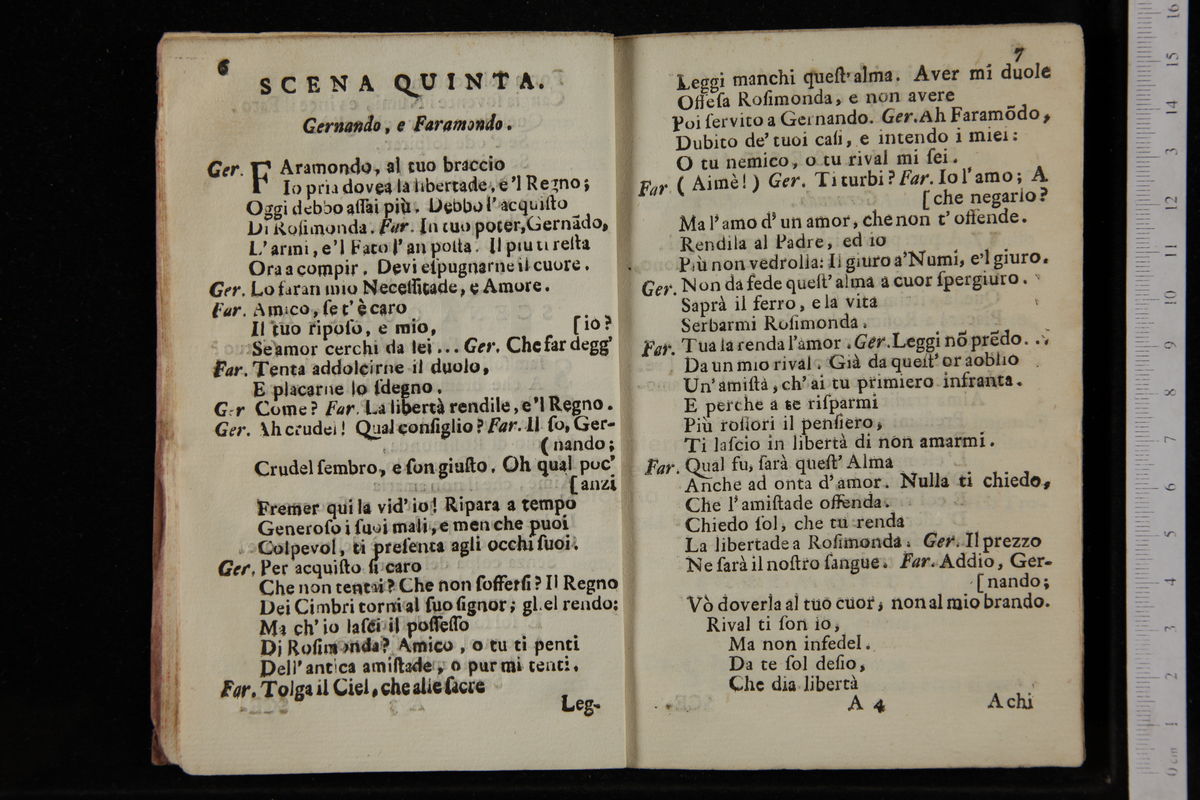 6
SCENA QUINTA.
Gernando, e Faramondo.
Ger. FAramondo, al tuo braccio
Io pria dovea la libertade, e'l Regno;
Oggi debbo aſſai più. Debbo l'acquiſto
Di Roſimonda. Far. In tuo poter, Gernãdo,
L'armi, e'l Fato l'an poſta. Il piu ti reſta
Ora a compir. Devi eſpugnarne il cuore.
Ger. Lo faran mio Neceſſitade, e Amore.
Far. Amico, ſe t'è caro
Il tuo ripoſo, e mio,
[io?
Se amor cerchi da lei... Ger. Che far degg'
Far. Tenta addolcirne il duolo,
E placarne lo ſdegno.
Ger Come? Far. La libertà rendile, e'l Regno.
Ger. Ah crudel! Qual conſiglio? Far. Il ſo, Ger-
(nando;
Crudel ſembro, e ſon giuſto. Oh qual poc'
[anzi
Fremer qui la vid'io! Ripara a tempo
Generoſo i ſuoi mali, e men che puoi
Colpevol, ti preſenta agli occhi ſuoi.
Ger. Per acquiſto ſi caro
Che non tentai? Che non ſofferſi? Il Regno
Dei Cimbri torni al ſuo ſignor; gl.el rendo:
Ma ch'io laſci il poſſeſſo
Di Roſimonda? Amico, o tu ti penti
Dell'antica amiſtade, o pur mi tenti.
Far. Tolga il Ciel, che alle ſacre
Leg-
7
Leggi manchi queſt'alma. Aver mi duole
Offeſa Roſimonda, e non avere
Poi ſervito a Gernando. Ger. Ah Faramõdo,
Dubito de' tuoi caſi, e intendo i miei:
O tu nemico, o tu rival mi ſei.
Far. (Aimè!) Ger. Ti turbi? Far. Io l'amo; A
[che negarlo?
Ma l'amo d'un amor, che non t'offende.
Rendila al Padre, ed io
Più non vedrolla: Il giuro a'Numi, e'l giuro.
Ger. Non da fede queſt'alma a cuor ſpergiuro.
Saprà il ferro, e la vita
Serbarmi Roſimonda.
Far. Tua la renda l'amor. Ger. Leggi nõ prẽdo..
Da un mio rival. Già da queſt'or aoblio
Un'amiſtà, ch'ai tu primiero infranta.
E perche a te riſparmi
Più roſſori il penſiero,
Ti laſcio in libertà di non amarmi.
Far. Qual fu, ſarà queſt'Alma
Anche ad onta d'amor. Nulla ti chiedo,
Che l'amiſtade offenda.
Chiedo ſol, che tu renda
La libertade a Roſimonda. Ger. Il prezzo
Ne ſarà il noſtro ſangue. Far. Addio, Ger-
[nando;
Vò doverla al tuo cuor, non al mio brando.
Rival ti ſon io,
Ma non infedel.
Da te ſol deſio,
Che dia libertà
A 4
A chi